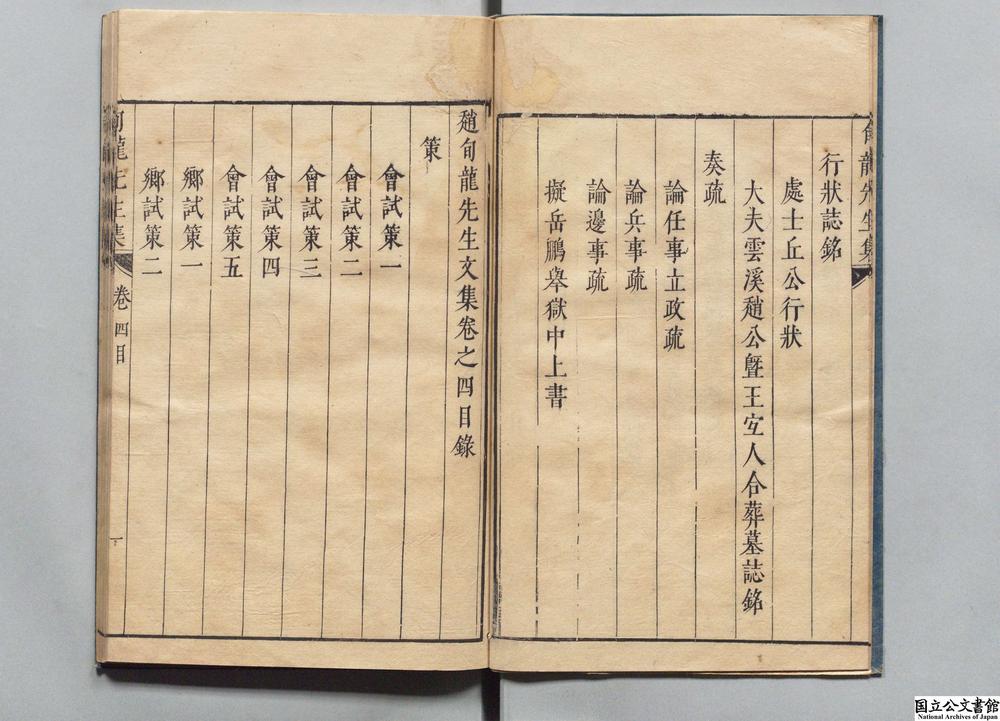 行狀誌銘
處士丘公行狀
大夫雲溪趙公曁王宜人合葬墓誌銘
奏疏
論任事立政疏
論兵事疏
論邊事疏
擬岳鵬舉獄中上書
趙旬龍先生文集卷之四目錄
策
會試策一
會試策二
會試策三
會試策四
會試策五
鄉試策一
鄉試策二
旬龍先生集 卷四目 一
国立公文書館
National Archives of Japan